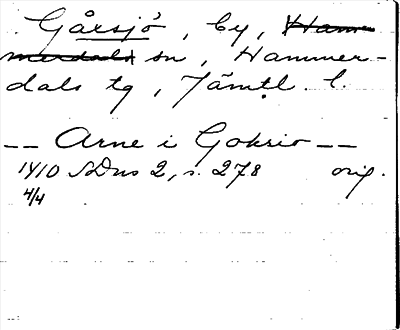 Gårsjö, by, Hammerdals sn, Hammer-
dals tg, Jämtl. l.
-- Arne i Goksio --
1410 SDns 2, s. 278 orig.
4/4